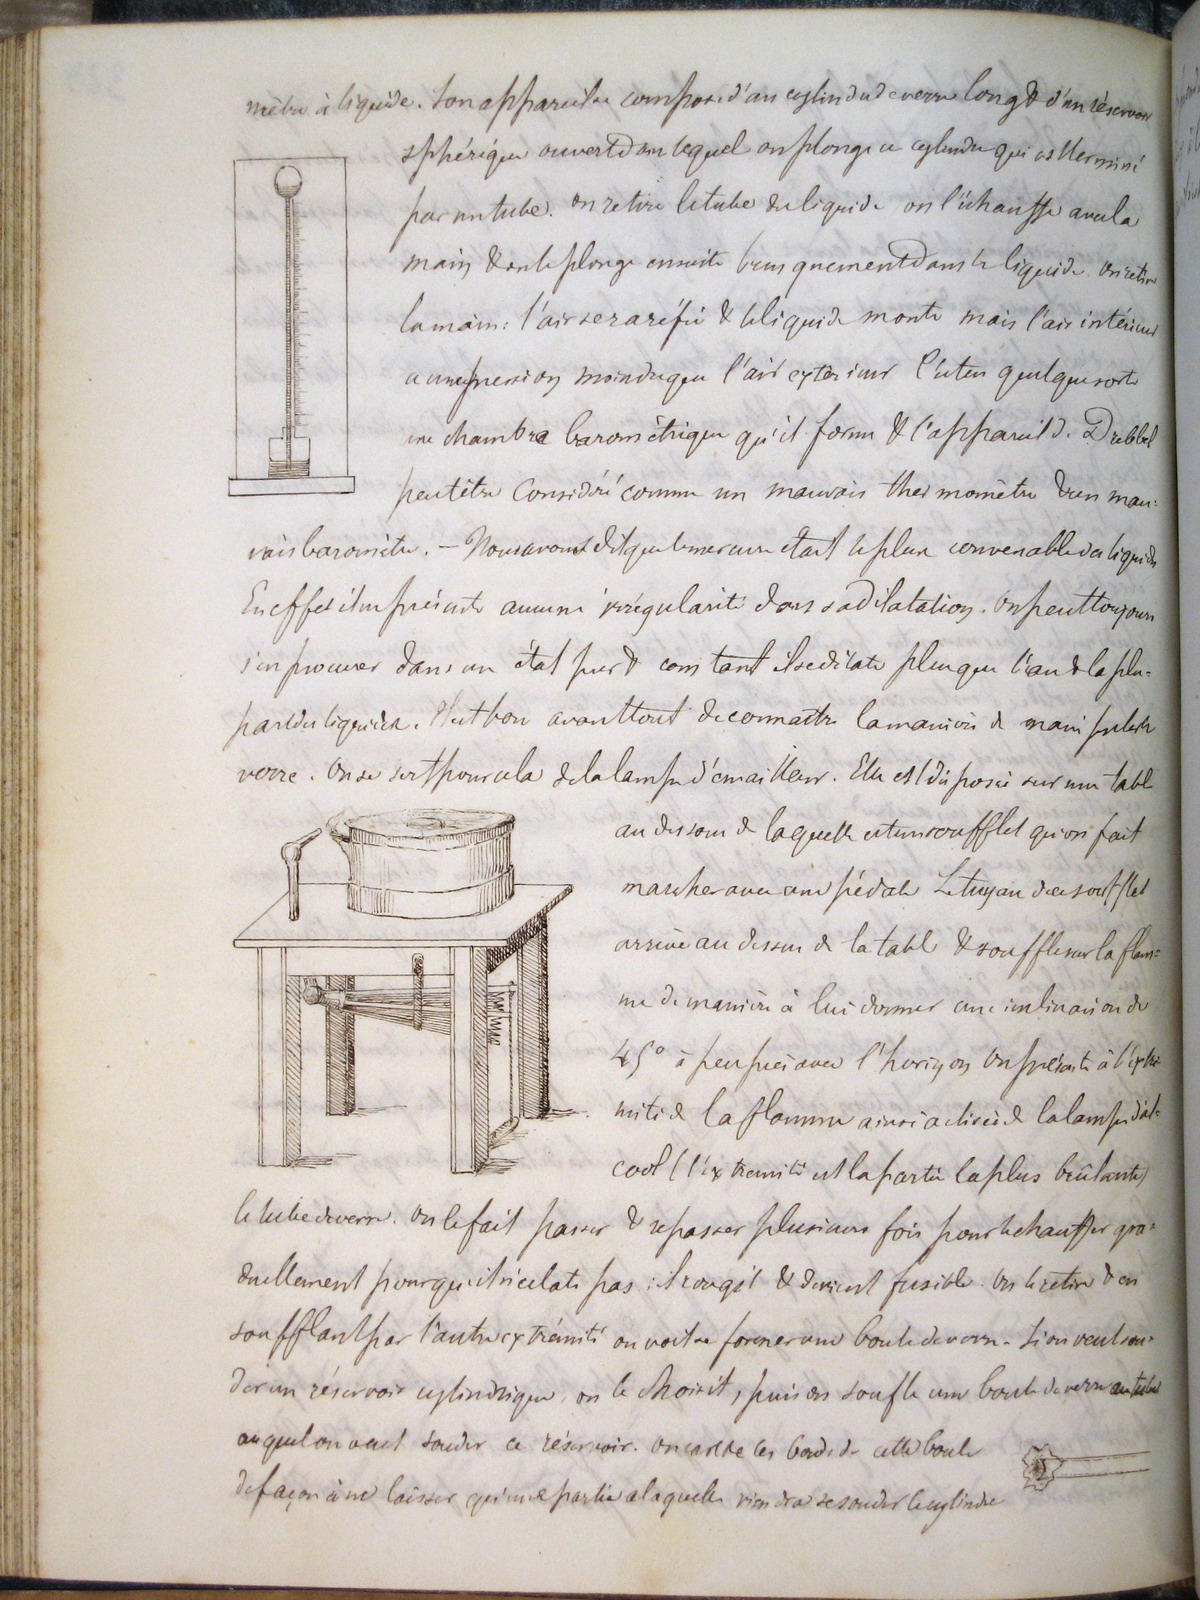 mètre à liquide. Son appareil se compose d'un cylindre de verre long & d'un réservoir
sphérique ouvert dans lequel on plonge ce cylindre qui est terminé
par un tube. On retire le tube du liquide on l'échauffe avec la
main & on le plonge ensuite brusquement dans le liquide. on retire
la main: l'air se raréfie & le liquide monte mais l'air intérieur
a une pression moindre que l'air extérieur. C'est en quelque sorte
une chambre barométrique qu'il forme & l'appareil d. Drebbel
peut être considéré comme un mauvais thermomètre & un mau-
vais baromètre. – Nous avons dit que le mercure était le plus convenable des liquides
En effet il ne présente aucune irrégularité dans sa dilatation. On peut toujours
s'en procurer dans un état pur & constant il se dilate plus que l'eau & la plu-
part des liquides. Il est bon avant tout de connaître la manière de manipuler le
verre. On se sert pour cela de la lampe d'émailleur. Elle est disposée sur une table
au dessous de laquelle est un soufflet qu'on fait
marcher avec une pédale Le tuyau de ce soufflet
arrive au dessus de la table & souffle sur la flam-
me de manière à lui donner une inclinaison de
45° à peu près avec l'horizon On présente à l'extré-
mité de la flamme ainsi activée de la lampe d'al-
cool (l'extrémité est la partie la plus brûlante)
le tube de verre. On le fait passer & repasser plusieurs fois pour l'échauffer gra-
duellement pour qu'il n'éclate pas : il rougit & devient fusible. On le retire & en
soufflant par l'autre extrémité on voit se former une boule de verre. Si on veut sou-
der un réservoir cylindrique, on le choisit, puis on souffle une boule de verre au tube
auquel on veut souder ce réservoir. On casse les bords de cette boule
de façon à ne laisser qu'une partie a laquelle viendra se souder le cylindre